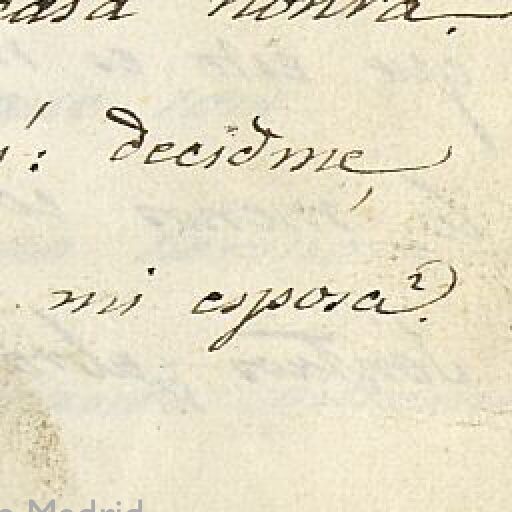 casa honra.
í: decidme,
mi esposa?
Madrid